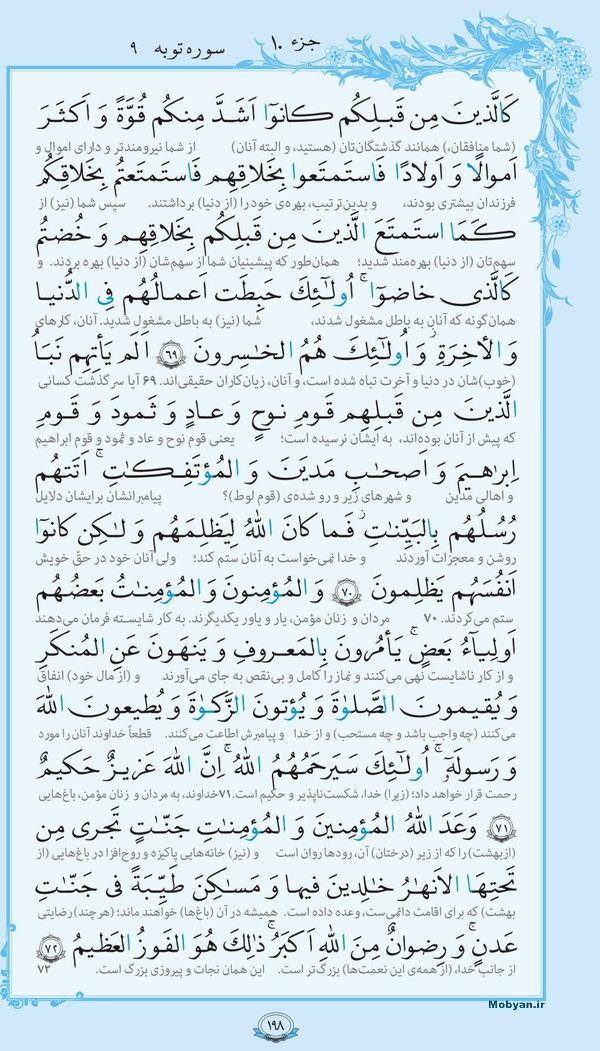 جزء ۱۰
سوره توبه ۹
كَالَّذينَ مِن قَبلِكُم كانوا اَشَدَّ مِنكُم قُوَّةً وَ اَكثَرَ
(شما منافقان،) همانند گذشتگان‌تان (هستید)، و البته آنان) از شما نیرومندتر و دارای اموال و
اَموالًا وَ اَولادًا فَاستَمتَعوا بِخَلاقِهِم فَاستَمتَعتُم بِخَلاقِكُم
فرزندان بیشتری بودند، و بدین‌ترتیب، بهره‌ی خود را (از دنیا) برداشتند. سپس شما (نیز) از
كَمَا استَمتَعَ الَّذينَ مِن قَبلِكُم بِخَلاقِهِم وَ خُضتُم
سهم‌تان (از دنیا) بهره‌مند شدید؛ همان‌طور که پیشینیان شما از سهم‌شان (از دنیا) بهره بردند. و
كَالَّذى خاضوا ۚ اُولٰئِكَ حَبِطَت اَعمالُهُم فِى الدُّنيا
همان‌گونه که آنان به باطل مشغول شدند، شما (نیز) به باطل مشغول شدید. آنان، کارهای
وَ الاٰخِرَةِ ۖ وَ اُولٰئِكَ هُمُ الخٰسِرونَ ﴿۶۹﴾ اَلَم يَأتِهِم نَبَأُ
(خوب)شان در دنیا و آخرت تباه شده است، و آنان، زیان‌کاران حقیقی‌اند. ۶۹ آیا سرگذشت کسانی
الَّذينَ مِن قَبلِهِم قَومِ نوحٍ وَ عادٍ وَ ثَمودَ وَ قَومِ
که پیش از آنان بوده‌اند، به ایشان نرسیده است؛ یعنی قوم نوح و عاد و ثمود و قوم ابراهیم
اِبرٰهيمَ وَ اَصحٰبِ مَديَنَ وَ المُؤتَفِكٰتِ ۚ اَتَتهُم
و اهالی مدین و شهرهای زیر و رو شده‌ی (قوم لوط)؟ پیامبرانشان برایشان دلایل
رُسُلُهُم بِالبَيِّنٰتِ ۖ فَما كانَ اللهُ لِيَظلِمَهُم وَ لٰكِن كانوا
روشن و معجزات آوردند و خدا نمی‌خواست به آنان ستم کند؛ ولی آنان خود در حقّ خویش
اَنفُسَهُم يَظلِمونَ ﴿۷۰﴾ وَ المُؤمِنونَ وَ المُؤمِنٰتُ بَعضُهُم
ستم می‌کردند. ۷۰ مردان و زنان مؤمن، یار و یاور یکدیگرند. به کار شایسته فرمان می‌دهند
اَولِياءُ بَعضٍ ۚ يَأمُرونَ بِالمَعروفِ وَ يَنهَونَ عَنِ المُنكَرِ
و از کار ناشایست نهی می‌کنند و نماز را کامل و بی‌نقص به جای می‌آورند و (از مال خود) انفاق
وَ يُقيمونَ الصَّلوٰةَ وَ يُؤتونَ الزَّكوٰةَ وَ يُطيعونَ اللهَ
می‌کنند (چه واجب باشد و چه مستحب) و از خدا و پیامبرش اطاعت می‌کنند. قطعاً خداوند آنان را مورد
وَ رَسولَهُ ۚ اُولٰئِكَ سَيَرحَمُهُمُ اللهُ ۗ اِنَّ اللهَ عَزيزٌ حَكيمٌ
رحمت قرار خواهد داد؛ (زیرا) خدا، شکست‌ناپذیر و حکیم است. ۷۱ خداوند، به مردان و زنان مؤمن، باغ‌هایی
﴿۷۱﴾ وَعَدَ اللهُ المُؤمِنينَ وَ المُؤمِنٰتِ جَنّٰتٍ تَجرى مِن
(ازبهشت) را که از زیر (درختان) آن، رودها روان است و (نیز) خانه‌هایی پاکیزه و روح‌افزا در باغ‌هایی (از
تَحتِهَا الاَنهٰرُ خٰلِدينَ فيها وَ مَسٰكِنَ طَيِّبَةً فى جَنّٰتِ
بهشت) که برای اقامت دائمی‌ست، وعده داده است. همیشه در آن (باغ‌ها) خواهند ماند؛ (هرچند) رضایتی
عَدنٍ ۚ وَ رِضوانٌ مِنَ اللهِ اَكبَرُ ۚ ذٰلِكَ هُوَ الفَوزُ العَظيمُ ﴿۷۲﴾
از جانب خدا، (از همه‌ی این نعمت‌ها) بزرگ‌تر است. این همان نجات و پیروزی بزرگ است. ۷۲
Mobyan.ir
۱۹۸